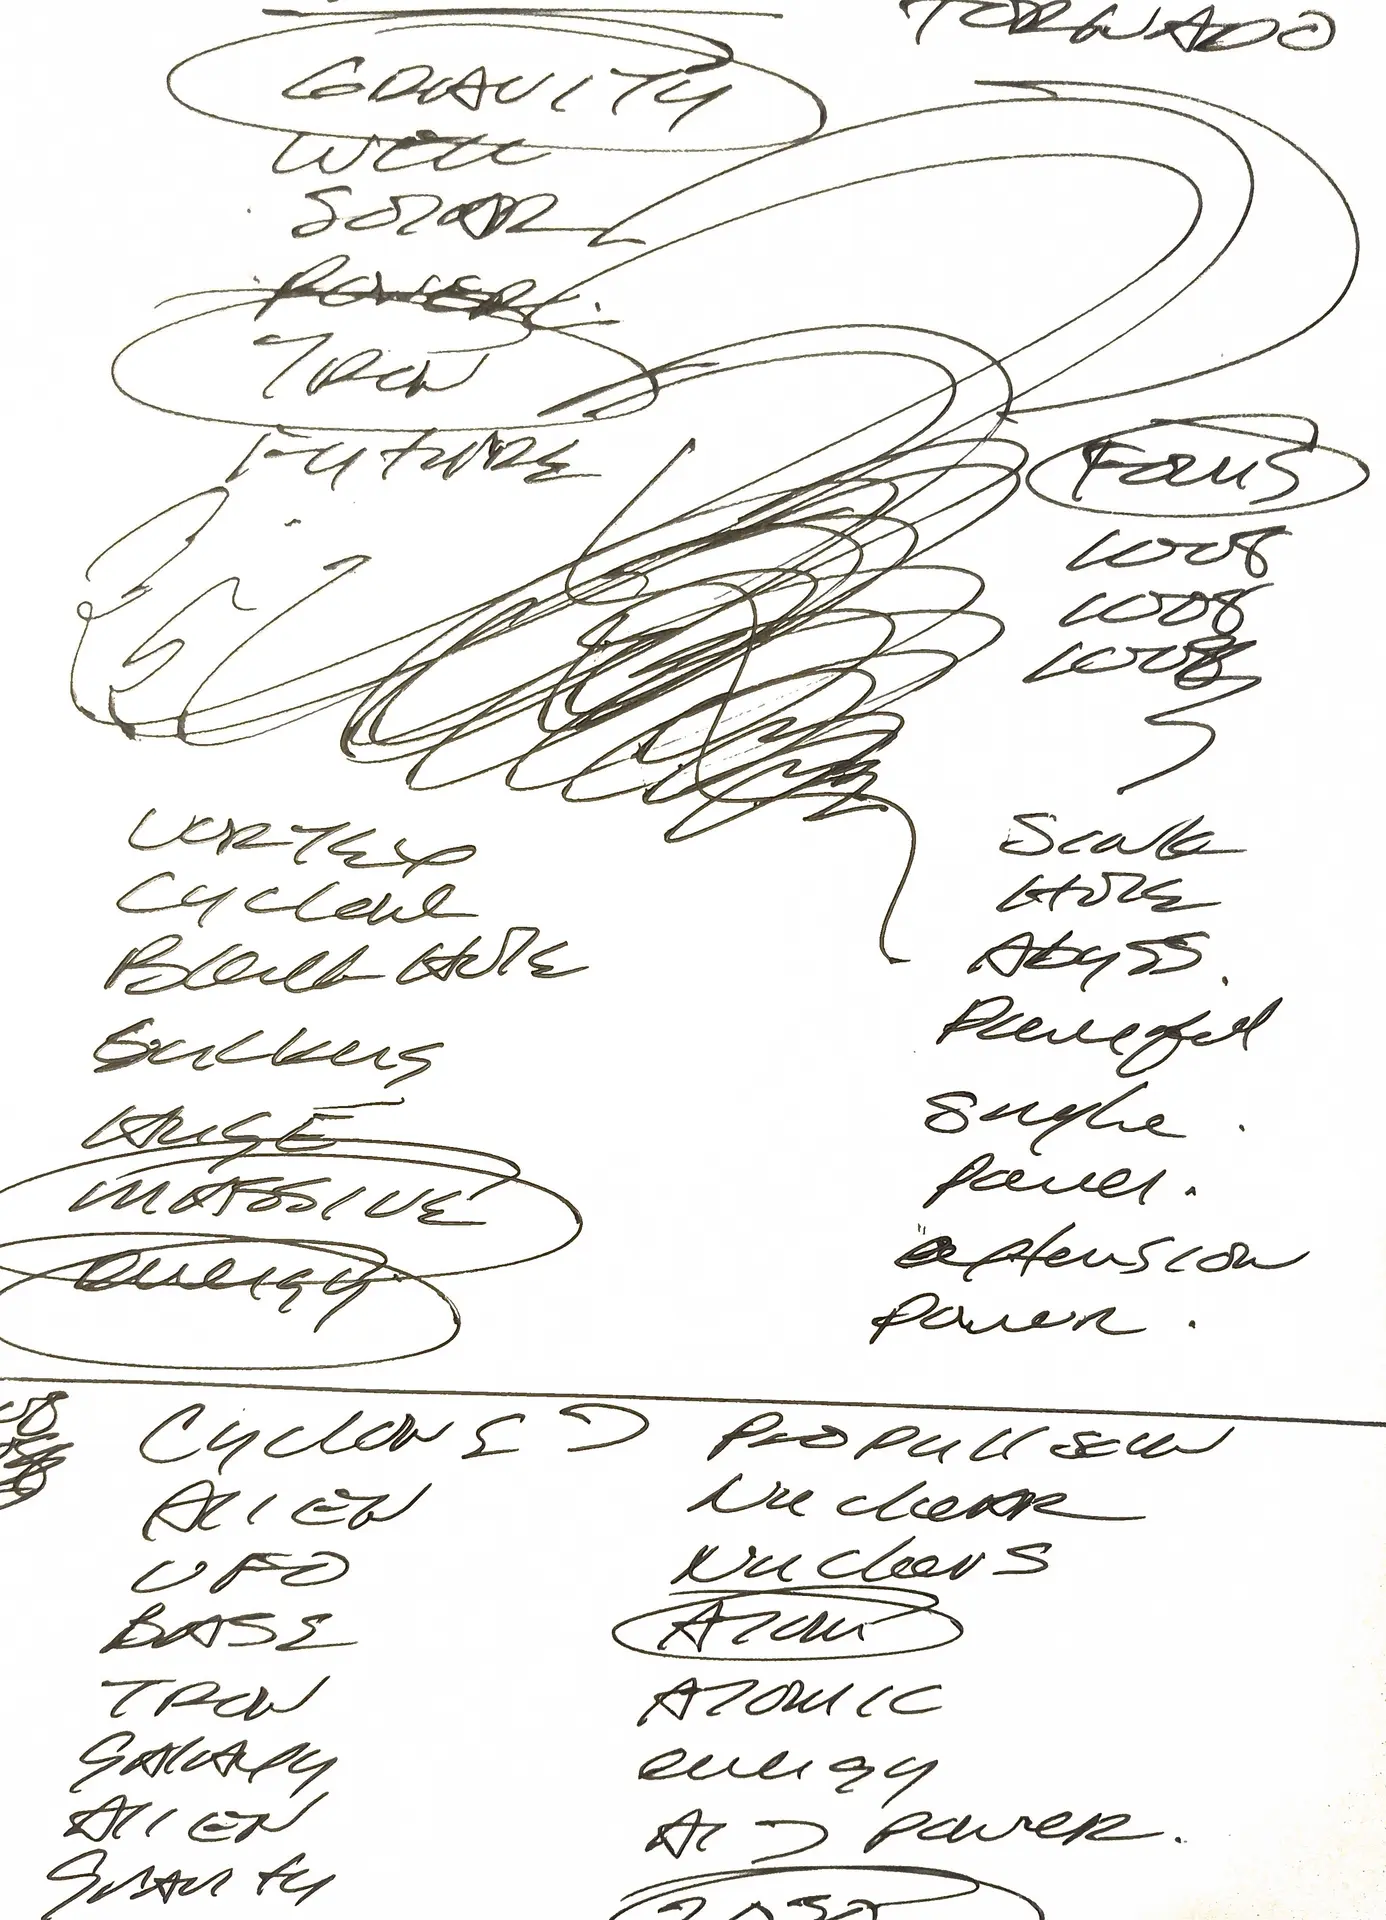 TORNADO
GRAVITY
WELL
SOLAR
POWER.
TRON
FUTURE
Focus
Vortex
Cyclone
Black Hole
HUGE
MASSIVE
energy
Scale
Hole
Abyss.
Powerful
Single.
Power.
extension
Power.
Cyclone
ALIEN
UFO
BASE
TRON
Galaxy
ALIEN
Gravity
PROPULLSION
Nuclear
Nucleus
ATOM
ATOMIC
energy
AI
power.